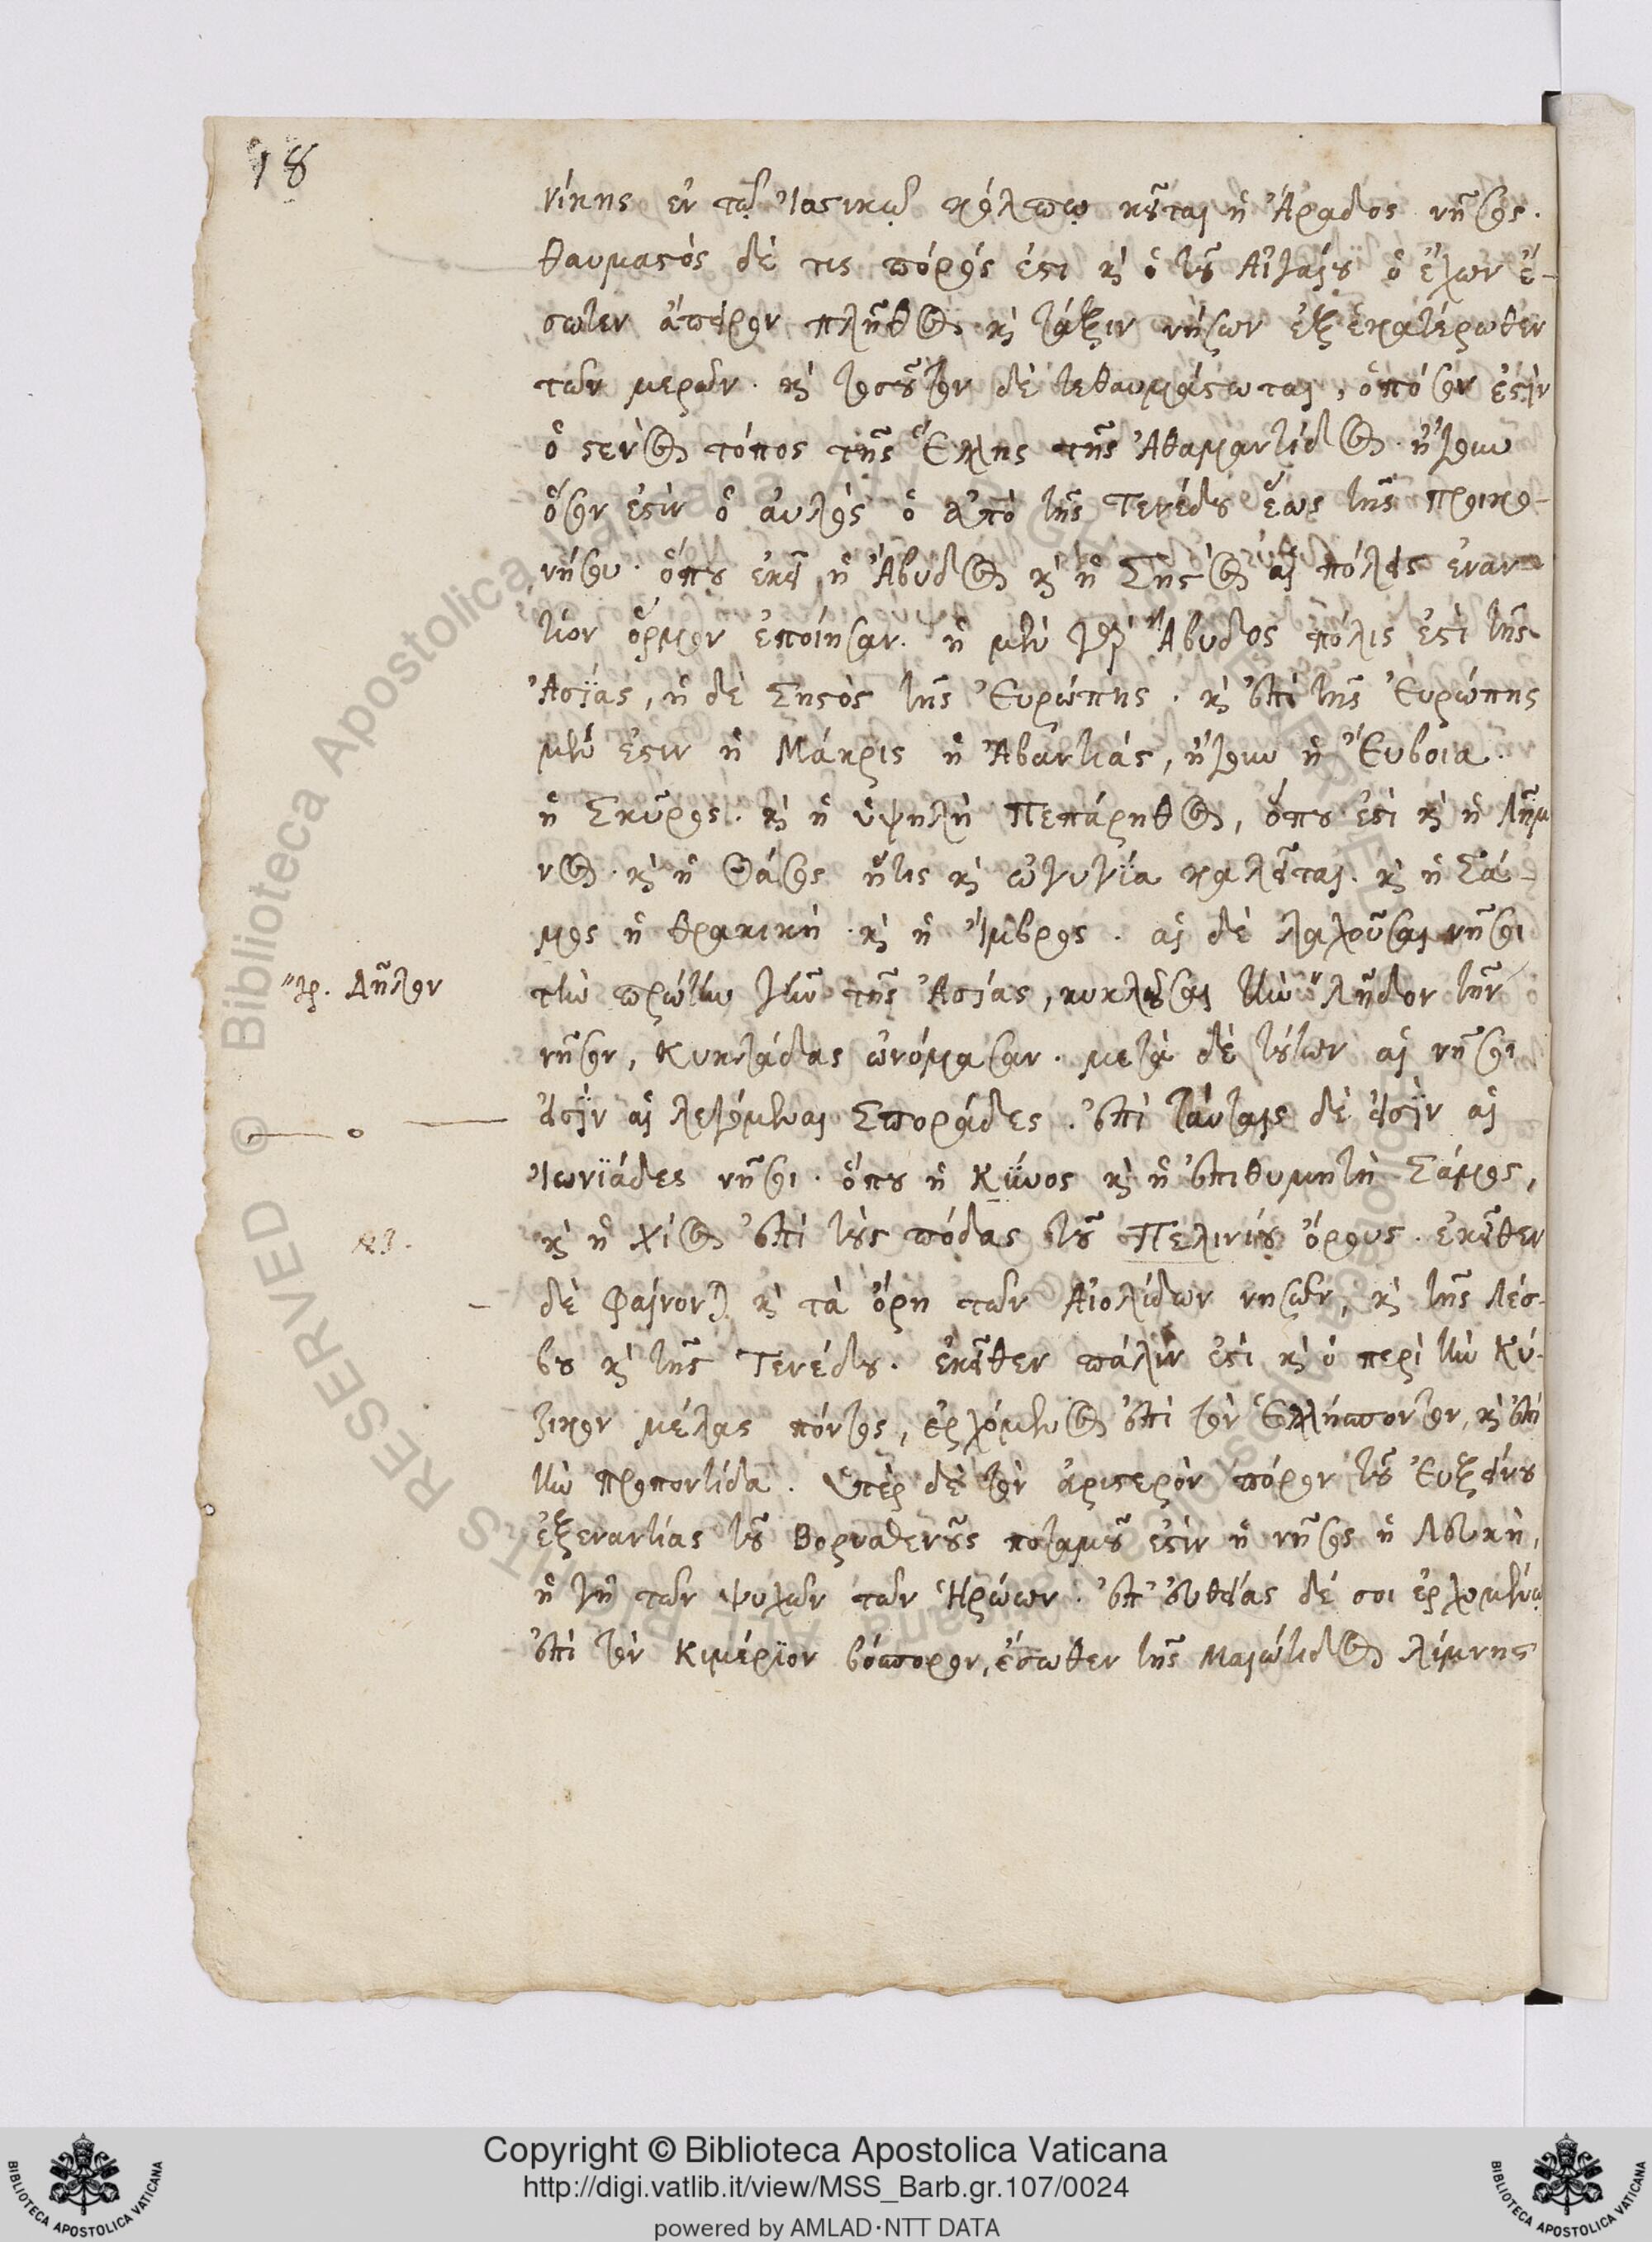 18
νίκης ἐν τῷ Ἰασικῷ κόλπῳ κεῖται ἡ Ἄραδος νῆσος.
θαυμαστὸς δέ τις πόρος ἐστι κὶ ὁ τοῦ Αἰγαίου ὁ ἔχων ἔ-
σωτεν ἄπειρον πλῆθος κὶ τάξιν νήσων ἐξ ἑκατέρωθεν
τῶν μερῶν. κὶ τοσοῦτον δὲ τεθαυμάσωται, ὁπόσον ἐστὶν
ὁ στενὸς τόπος τῆς Ἕλλης τῆς Ἀθαμαντίδος. ἤγουν
ὅσον ἐστὶν ὁ αὐλὸς ὁ ἀπὸ τῆς Τενέδου ἕως τῆς Προικο-
νήσου. ὅπου ἐκεῖ ἡ Ἄβυδος κὶ ἡ Σηστὸς αἱ πόλεις ἐναν-
τίον ὅρμον ἐποίησαν. ἡ μὲν γὰρ Ἄβυδος πόλις ἐστὶ τῆς
Ἀσίας, ἡ δὲ Σηστὸς τῆς Εὐρώπης. κὶ ἐπὶ τῆς Εὐρώπης
μέν ἐστιν ἡ Μάκρις ἡ Ἀβαντιάς, ἤγουν ἡ Εὔβοια.
ἡ Σκῦρος. κὶ ἡ ὑψηλὴ Πεπάρηθος, ὅπου ἐστὶ κὶ ἡ Λῆμ
νος. κὶ ἡ Θάσος ἥτις κὶ ὠγυγία καλεῖται. κὶ ἡ Σά-
μος ἡ θρακικὴ. κὶ ἡ Ἴμβρος. αἱ δὲ λαχοῦσαι νῆσοι
τὴν πρώτην γῆν τῆς Ἀσίας, κυκλοῦσαι τὴν λῆδον τὴν
γρ. Δῆλον
νῆσον, Κυκλάδας ὠνόμασαν. μετὰ δὲ τούτων αἱ νῆσοι
εἰσὶν αἱ λεγόμεναι Σποράδες. ἐπὶ ταύταις δὲ εἰσὶν αἱ
Ἰωνιάδες νῆσοι. ὅπου ἡ Κῦνος κὶ ἡ ἐπιθυμητὴ Σάμος,
κὶ ἡ Χίος ἐπὶ τοὺς πόδας τοῦ Πελινίου ὄρους. ἐκεῖθεν
δὲ φαίνονται κὶ τὰ ὄρη τῶν Αἰολίδων νησῶν, κὶ τῆς Λέσ-
βου κὶ τῆς Τενέδου. ἐκεῖθεν πάλιν ἐστὶ κὶ ὁ περὶ τὴν Κύ-
ζικον μέλας πόντος, ἐρχόμενος ἐπὶ τὸν Ἑλλήσποντον, κὶ ἐπὶ
τὴν προποντίδα. ὑπὲρ δὲ τὸν ἀριστερὸν πόρον τοῦ Εὐξείνου
ἐξεναντίας τοῦ Βορυσθενοῦς ποταμοῦ ἐστὶν ἡ νῆσος ἡ Λευκὴ,
ἡ γῆ τῶν ψυχῶν τῶν Ἡρώων. ἐπ' εὐθείας δέ σοι ἐρχομένῳ
ἐπὶ τὸν Κιμέριον βόσπορον, ἔσωθεν τῆς Μαιώτιδος λίμνης
Copyright © Biblioteca Apostolica Vaticana
http://digi.vatlib.it/view/MSS_Barb.gr.107/0024
powered by AMLAD·NTT DATA